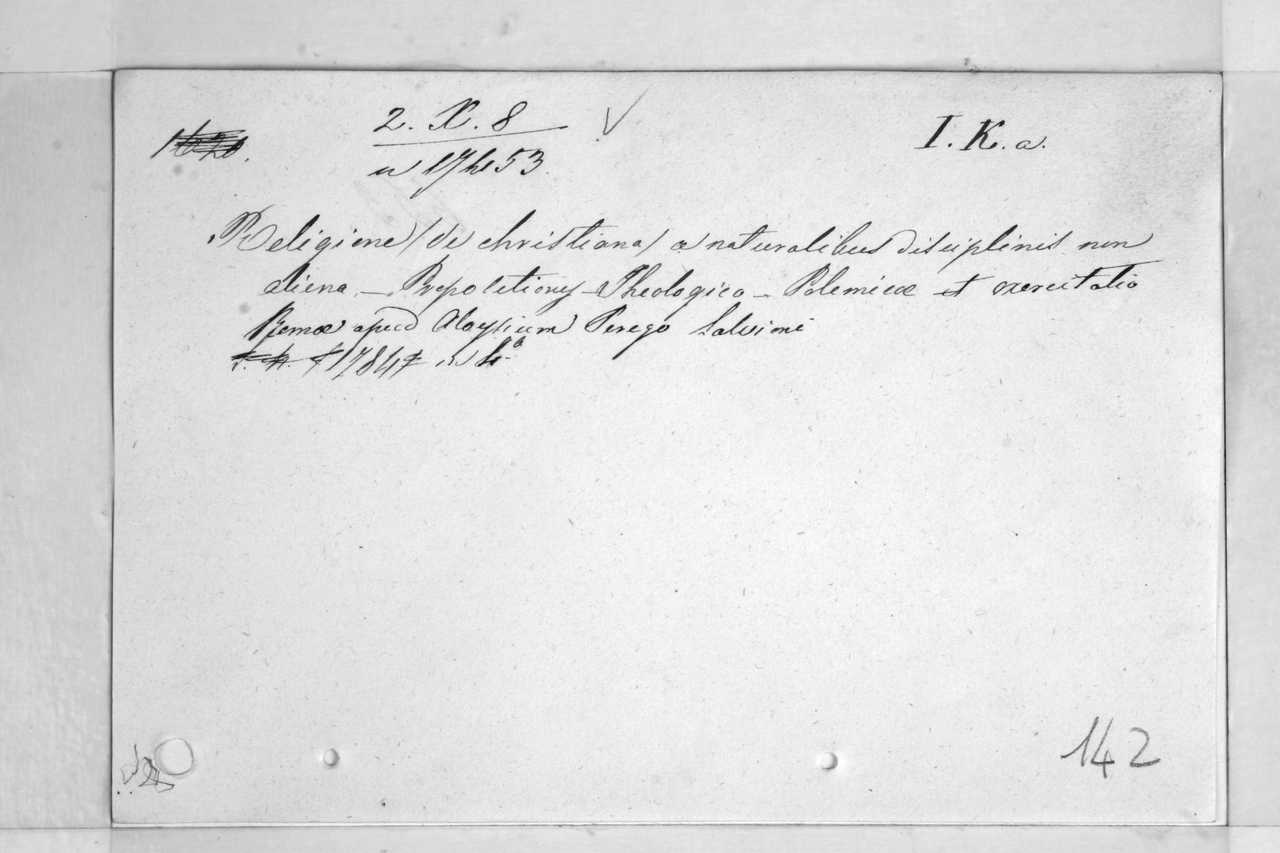 2. X. 8
n 17453
I. K. a.
Religione (de christiana) a naturalibus disciplinis non
aliena — Propositiones — Theologico — Polemicæ et exercitatio
Romæ apud Aloysium Perego Salvioni
1784 in 4°
142